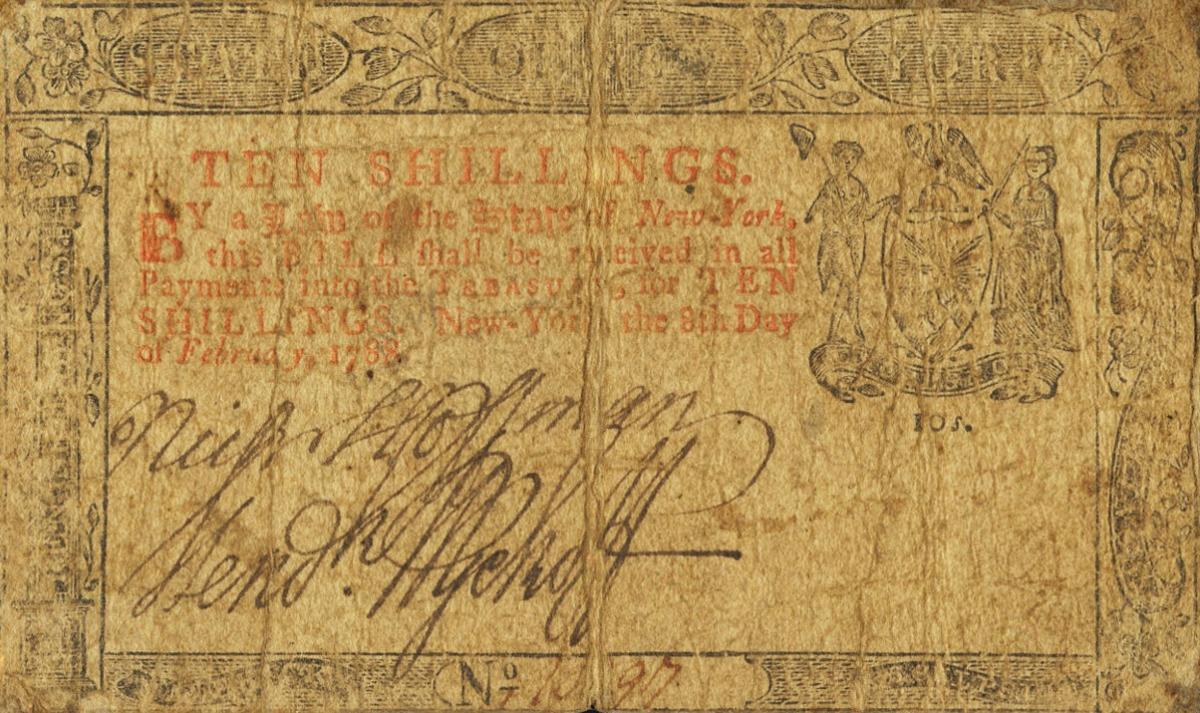 STATE OF NEW YORK
TEN SHILLINGS.
BY a Law of the State of New-York,
this BILL ſhall be received in all
Payments into the TREASURY, for TEN
SHILLINGS. New-York, the 8th Day
of February, 1788.
10s.
Hoffman
Hendk. Wyckoff
No